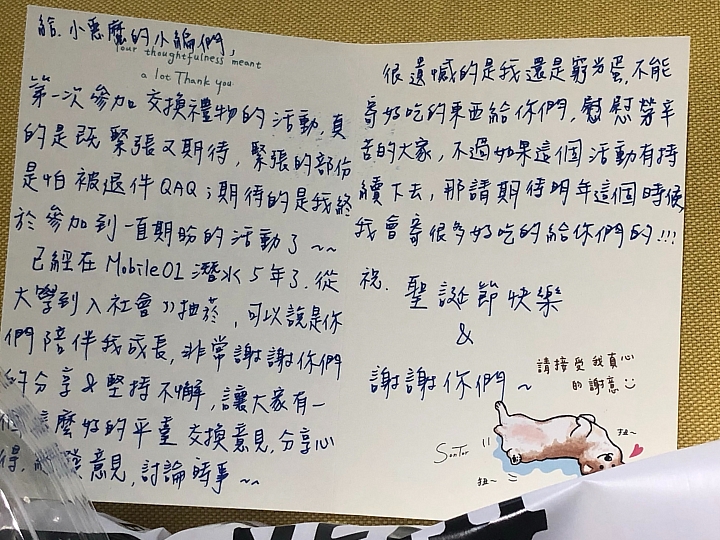 給.小惡魔的小編們,
Your thoughtfulness meant
a lot Thank you
第一次參加交換禮物的活動,真
的是既緊張又期待,緊張的部份
是怕被退件QAQ;期待的是我終
於參加到一直期盼的活動了~~
已經在Mobile01潛水5年了.從
大學到入社會》抽菸,可以說是你
們陪伴我成長,非常謝謝你們
的分享&堅持不懈,讓大家有一
麼好的平臺交換意見,分享心
得,意見,討論時事~~
很遺憾的是我還是窮光蛋,不能
寄好吃的東西給你們,慰慰勞辛
苦的大家,不過如果這個活動有持
續下去,那請期待明年這個時候
我會寄很多好吃的給你們的!!!
祝.聖誕節快樂
&
謝謝你們~
請接受我真心
的謝意
扭~
扭~